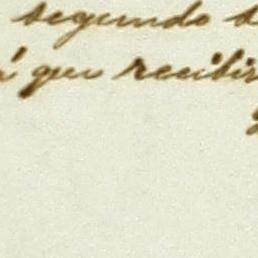 segundo
que recibir